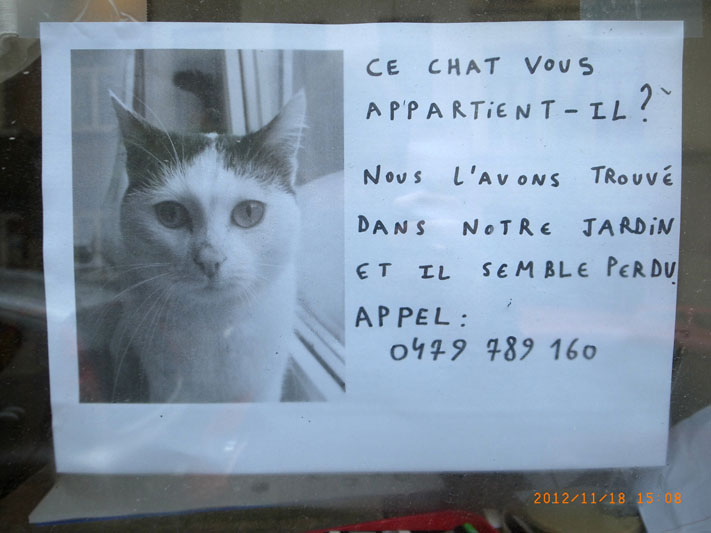 CE CHAT VOUS
APPARTIENT-IL?
NOUS L'AVONS TROUVÉ
DANS NOTRE JARDIN
ET IL SEMBLE PERDU
APPEL:
0479 789 160
2012/11/18 15:08